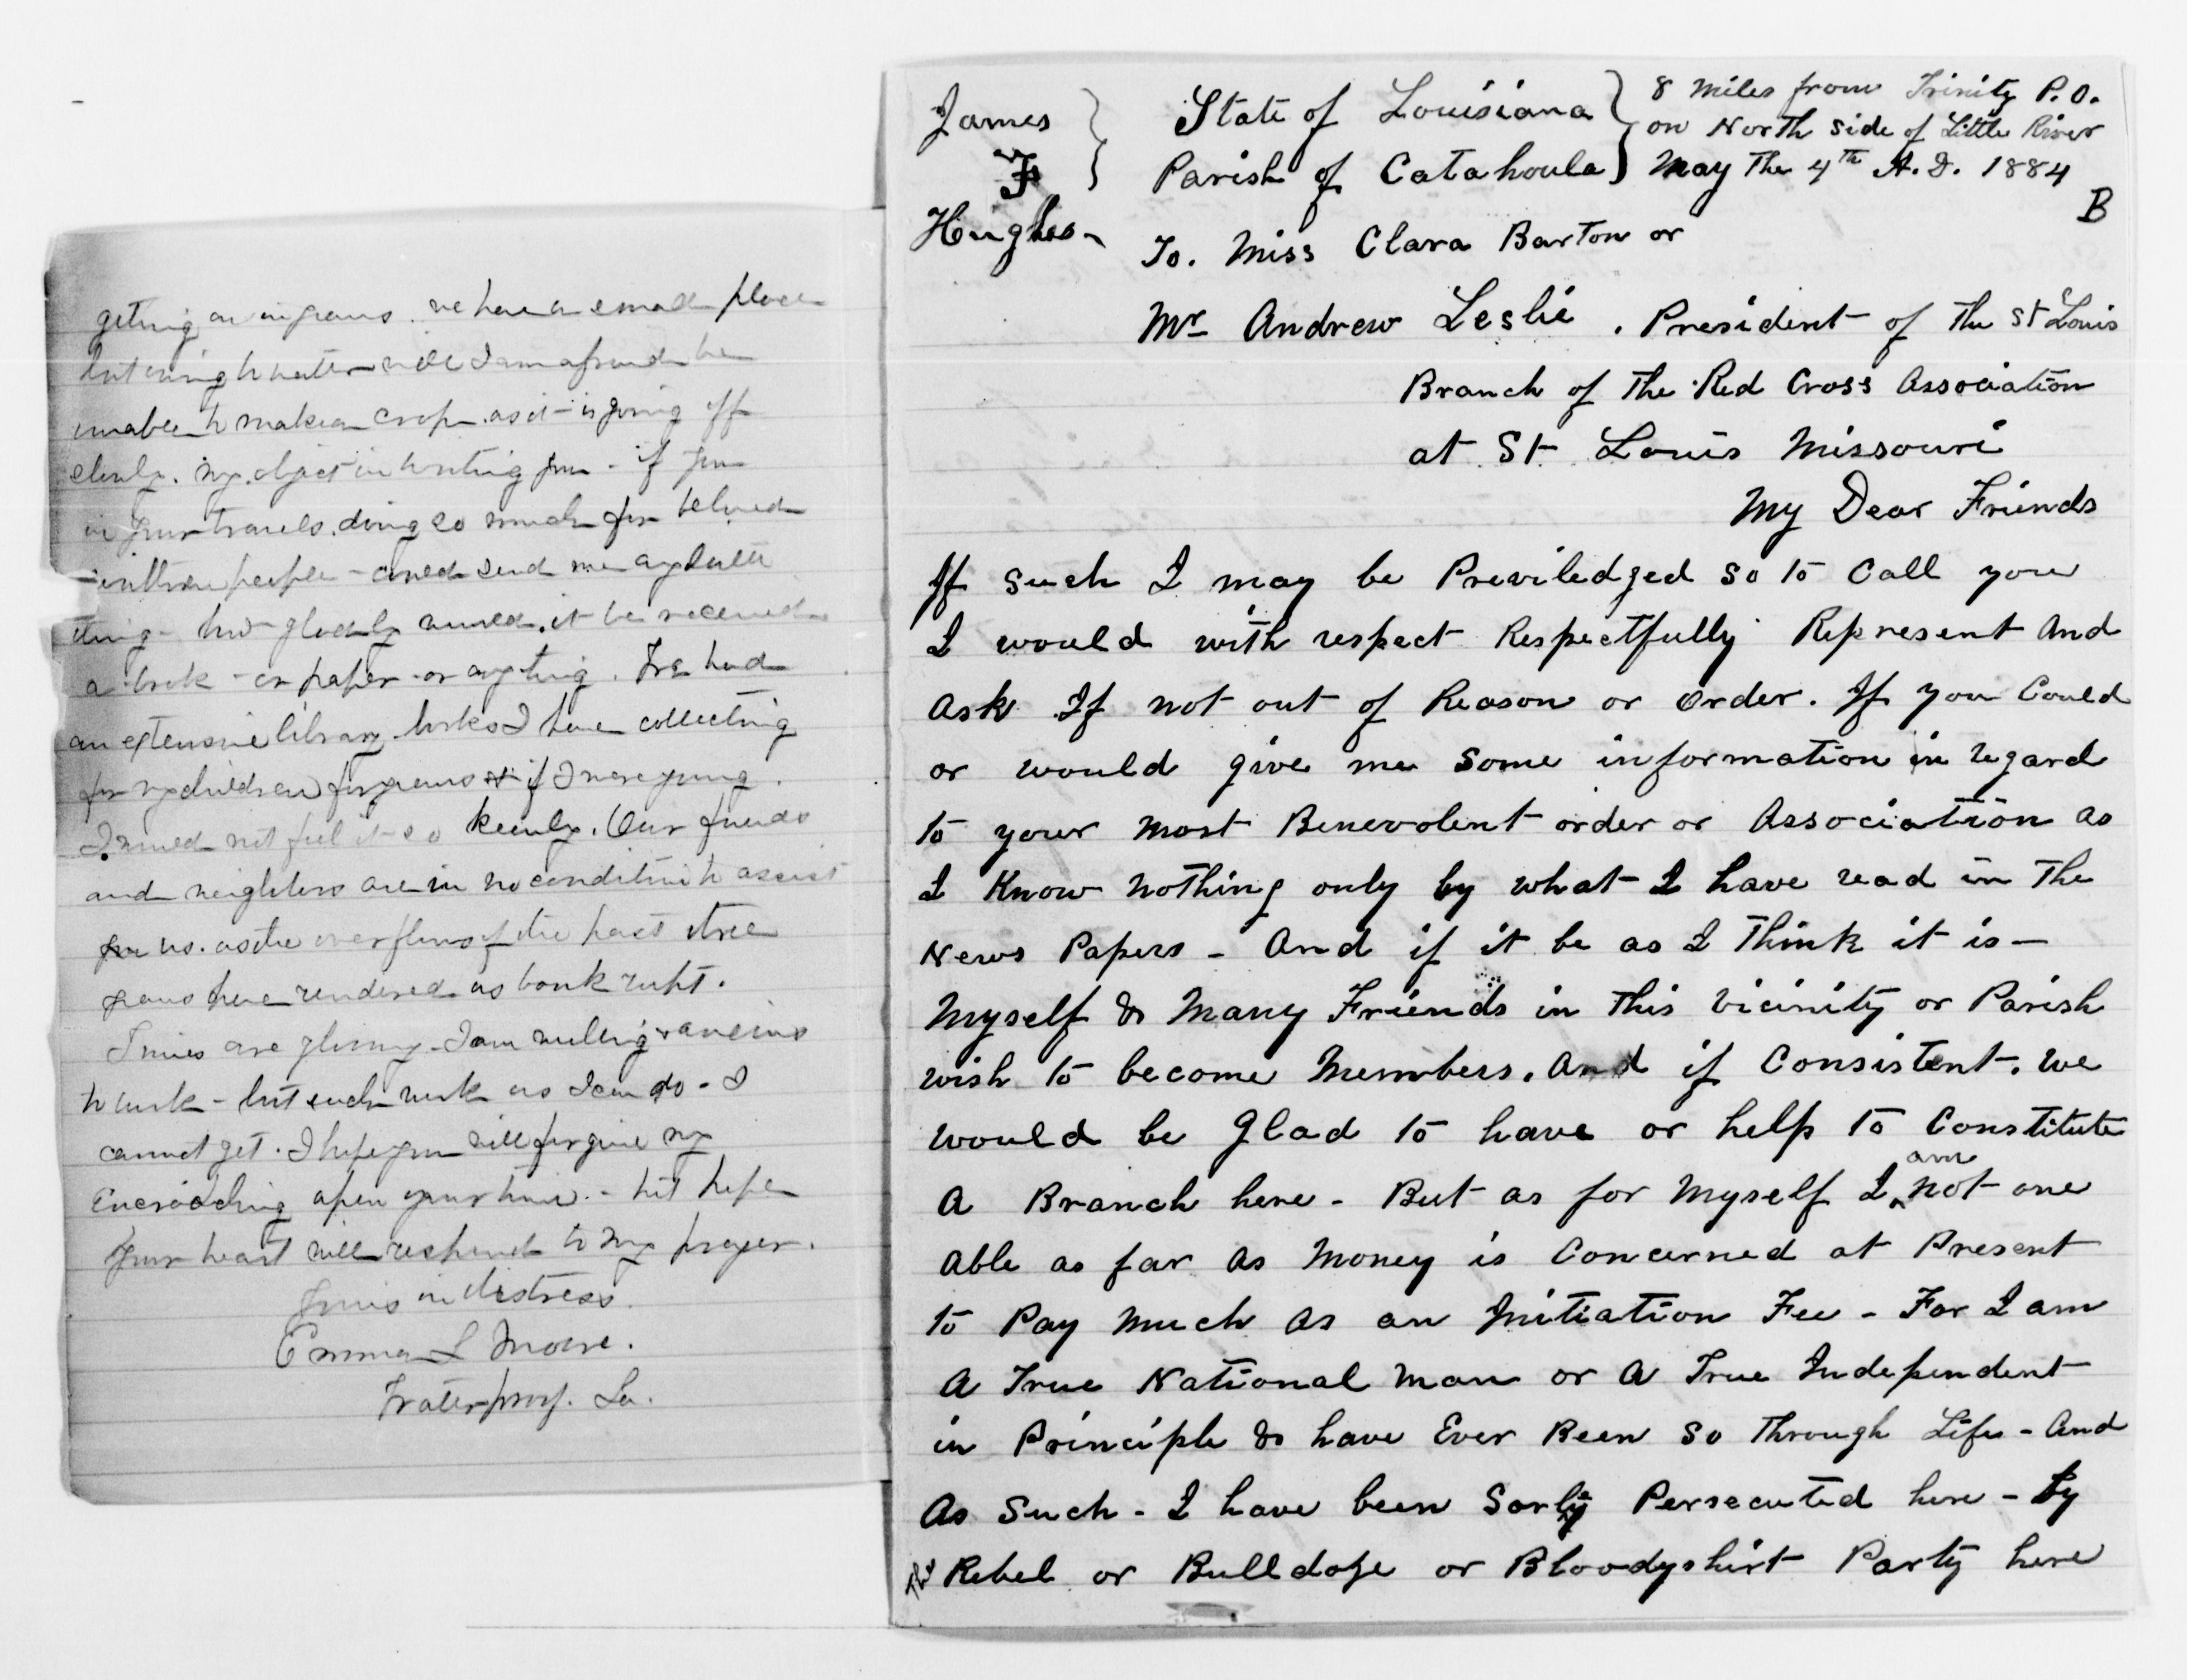 geting on in years. we have a small place
but enough water will I am afraid be
unable to make a crop. as it is going off
slowly. my object in writing you - if you
in your travels. doing so much for beloved
people - could send me any little
thing - how gladly would it be received
a book - or paper - or anything. We had
an extensive library. books I have collecting
for my children for years if I were young.
I would not feel it so keenly. Our friends
and neighbors are in no condition to assist
us. as the overflows of the past three
years have rendered us bankrupt.
Times are gloomy. I am willing & anxious
to work - but such work as I can do - I
cannot get. I hope you will forgive my
Encroaching upon your time. - but hope
your heart will respond to my prayer.
Yours in distress.
Emma L Moore.
Waterproof. La.
James
F
Hughes
State of Louisiana
Parish of Catahoula
8 Miles from Trinity P.O.
on North side of Little River
May The 4th A.D. 1884
B
To. Miss Clara Barton or
Mr Andrew Leslie. President of The St Louis
Branch of The Red Cross Association
at St Louis Missouri
My Dear Friends
If such I may be Previledged so to Call you
I would with respect Respectfully Represent And
Ask If not out of Reason or order. If you Could
or would give me some information in regard
to your most Benevolent order or Association as
I Know nothing only by what I have read in The
News Papers - And if it be as I Think it is -
Myself & Many Friends in This Vicinity or Parish
wish to become Members. And if Consistent. we
would be Glad to have or help to Constitute
A Branch here - But as for Myself I am not one
Able as far as Money is Concerned at Present
to Pay Much As an Initiation Fee - For I am
A True National Man or A True Independent
in Principle & have Ever Been So Through Life - And
As Such - I have been Sorly Persecuted here - by
The Rebel or Bulldoze or Bloodyshirt Party here